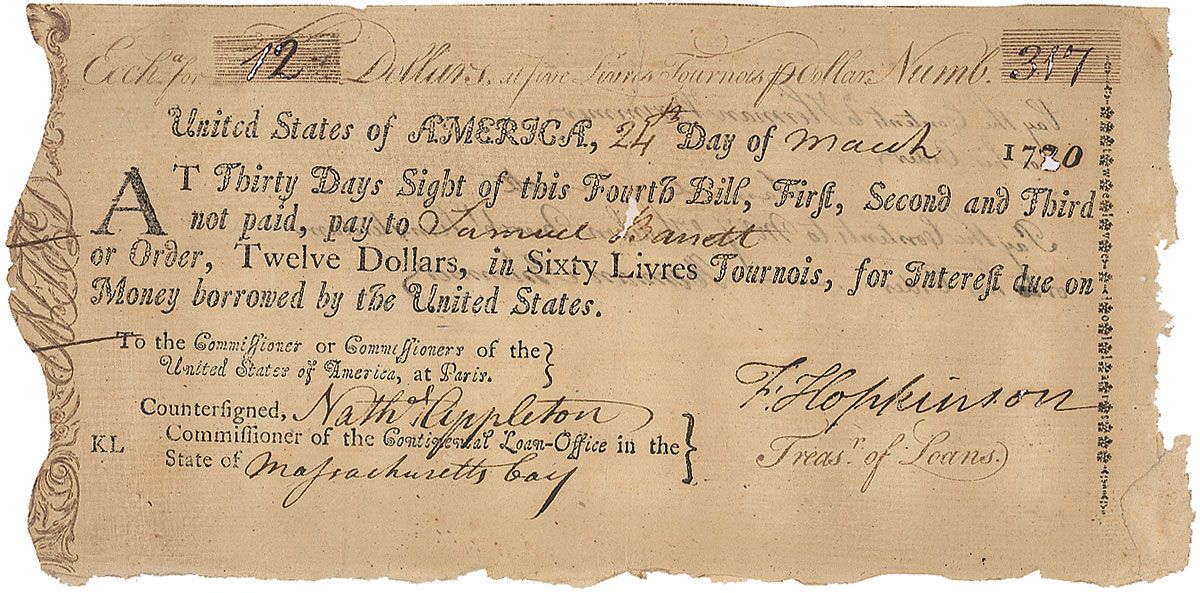 Exch.ª for 12 Dollars, at five Livres Tournois p Dollar. Numb. 317
United States of AMERICA, 24th Day of March 1780
AT Thirty Days Sight of this Fourth Bill, Firſt, Second and Third
not paid, pay to Samuel Barrett
or Order, Twelve Dollars, in Sixty Livres Tournois, for Intereſt due on
Money borrowed by the United States.
To the Commiſſioner or Commiſſioners of the
United States of America, at Paris.
Counterſigned, Nathˡ Appleton
F. Hopkinson
KL Commiſſioner of the Continental Loan-Office in the
Treasʳ. of Loans.
State of Massachusetts bay